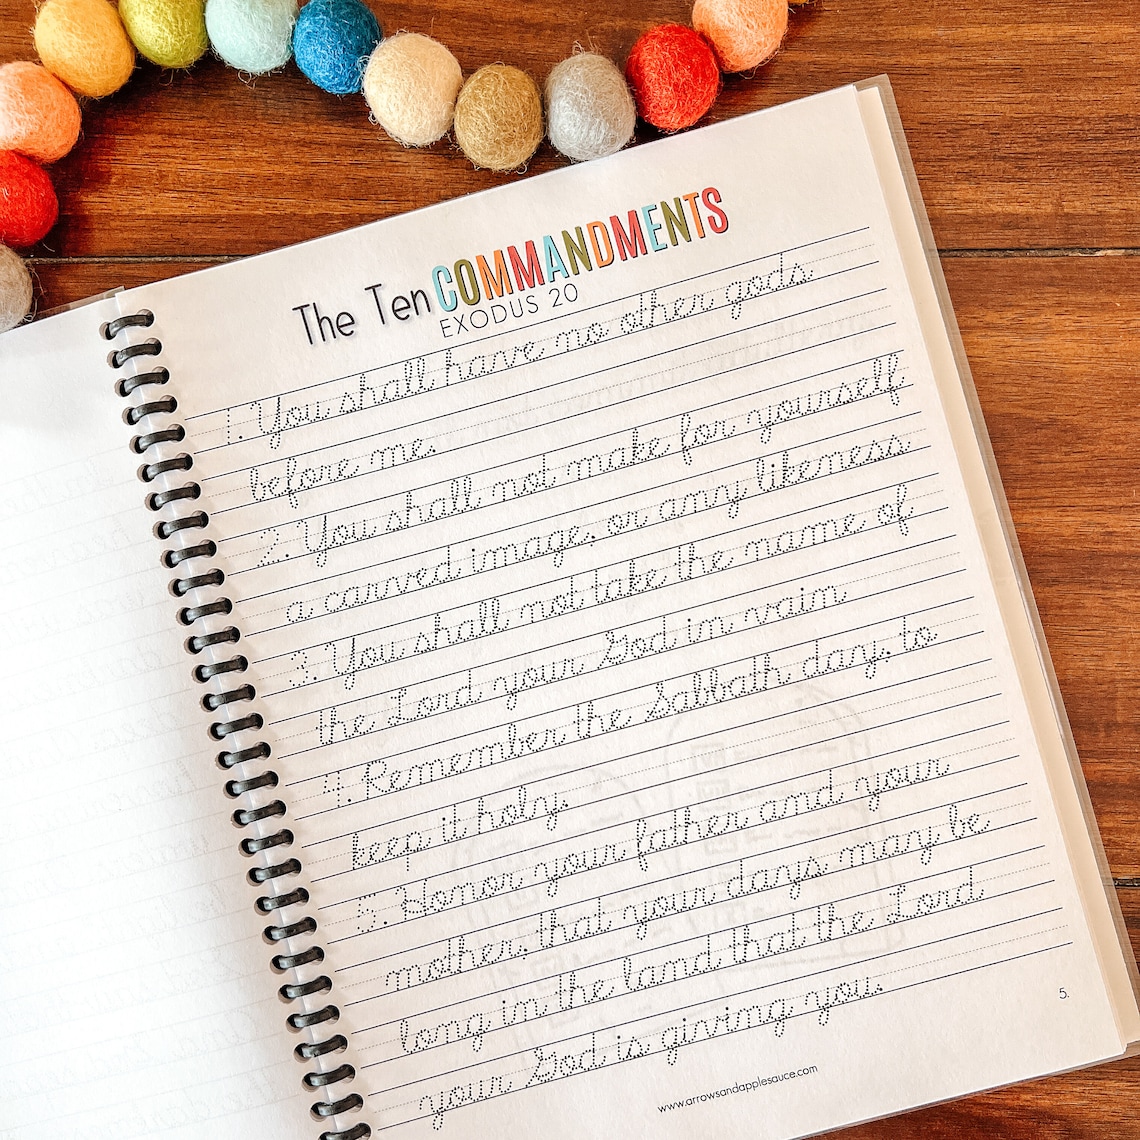 The Ten COMMANDMENTS
EXODUS 20
1. You shall have no other gods
before me.
2. You shall not make for yourself
a carved image, or any likeness
3. You shall not take the name of
the Lord your God in vain
4. Remember the Sabbath day, to
keep it holy.
5. Honor your father and your
mother, that your days may be
long in the land that the Lord
your God is giving you.
5.
www.arrowsandapplesauce.com